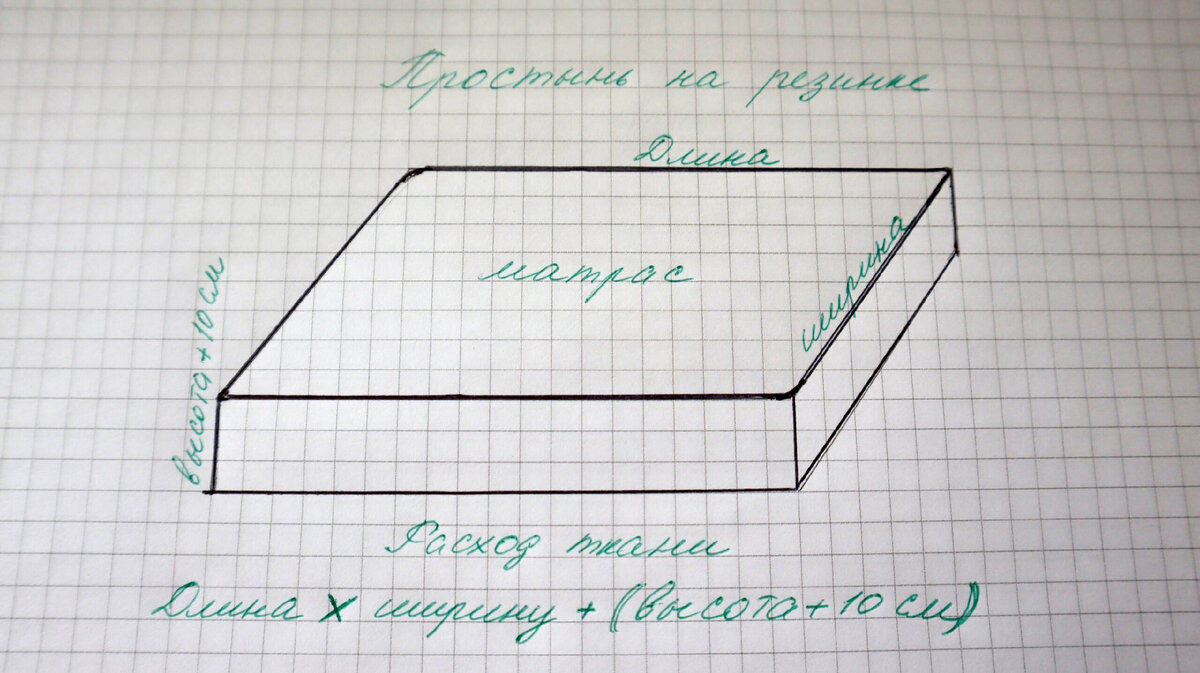 Простынь на резинке
Длина
ширина
матрас
высота + 10 см
Расход ткани
Длина х ширину + (высота + 10 см)